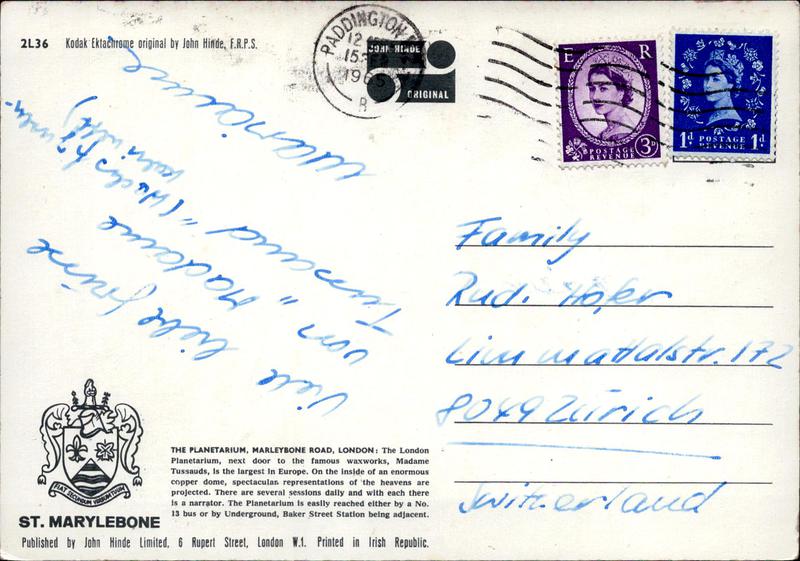 2L36 Kodak Ektachrome original by John Hinde, F.R.P.S.
PADDINGTON
12
15
196
B
JOHN HINDE
ORIGINAL
E R
POSTAGE
REVENUE
3D
1d POSTAGE 1d
REVENUE
Viele liebe Grüsse
von "Madame
Tussaud" (Wachsfiguren-
kabinett)
Marianne
Family
Rud. Hofer
Limmattalstr. 172
8049 Zürich
Switzerland
FIAT SECUNDUM VERBUM TUUM
ST. MARYLEBONE
THE PLANETARIUM, MARLEYBONE ROAD, LONDON: The London
Planetarium, next door to the famous waxworks, Madame
Tussauds, is the largest in Europe. On the inside of an enormous
copper dome, spectacular representations of the heavens are
projected. There are several sessions daily and with each there
is a narrator. The Planetarium is easily reached either by a No.
13 bus or by Underground, Baker Street Station being adjacent.
Published by John Hinde Limited, 6 Rupert Street, London W.1. Printed in Irish Republic.